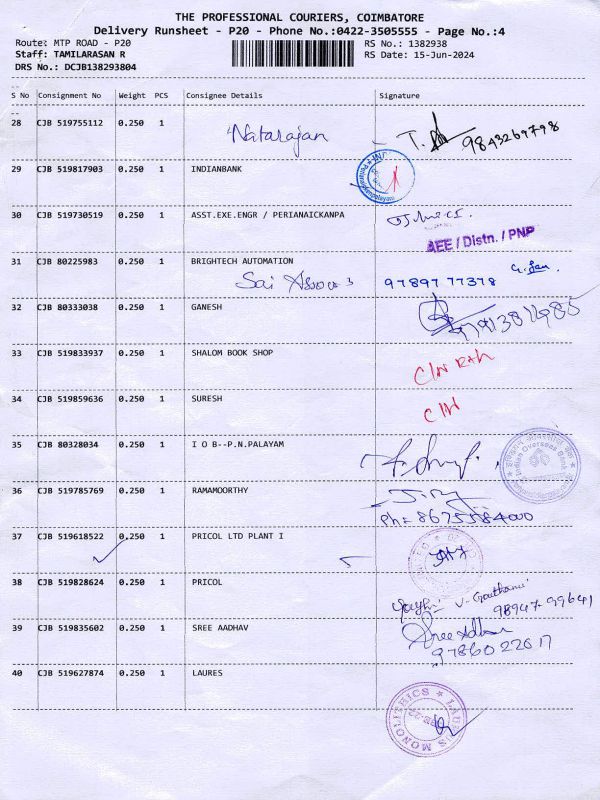 THE PROFESSIONAL COURIERS, COIMBATORE
Delivery Runsheet - P20 - Phone No.:0422-3505555 - Page No.:4
Route: MTP ROAD - P20 RS No.: 1382938
Staff: TAMILARASAN R RS Date: 15-Jun-2024
DRS No.: DCJB138293804
S No Consignment No Weight PCS Consignee Details Signature
28 CJB 519755112 0.250 1 Natarajan 9843269798
29 CJB 519817903 0.250 1 INDIANBANK
30 CJB 519730519 0.250 1 ASST.EXE.ENGR / PERIANAICKANPA
AEE / Distn. / PNP
31 CJB 80225983 0.250 1 BRIGHTECH AUTOMATION
Sai 97897 77378
32 CJB 80333038 0.250 1 GANESH
33 CJB 519833937 0.250 1 SHALOM BOOK SHOP
34 CJB 519859636 0.250 1 SURESH
35 CJB 80328034 0.250 1 I O B--P.N.PALAYAM
Indian Overseas Bank
36 CJB 519785769 0.250 1 RAMAMOORTHY
Ph: 8675584000
37 CJB 519618522 0.250 1 PRICOL LTD PLANT I
38 CJB 519828624 0.250 1 PRICOL
98947 99641
39 CJB 519835602 0.250 1 SREE AADHAV
9786022617
40 CJB 519627874 0.250 1 LAURES
LAURUS MONOLITHICS